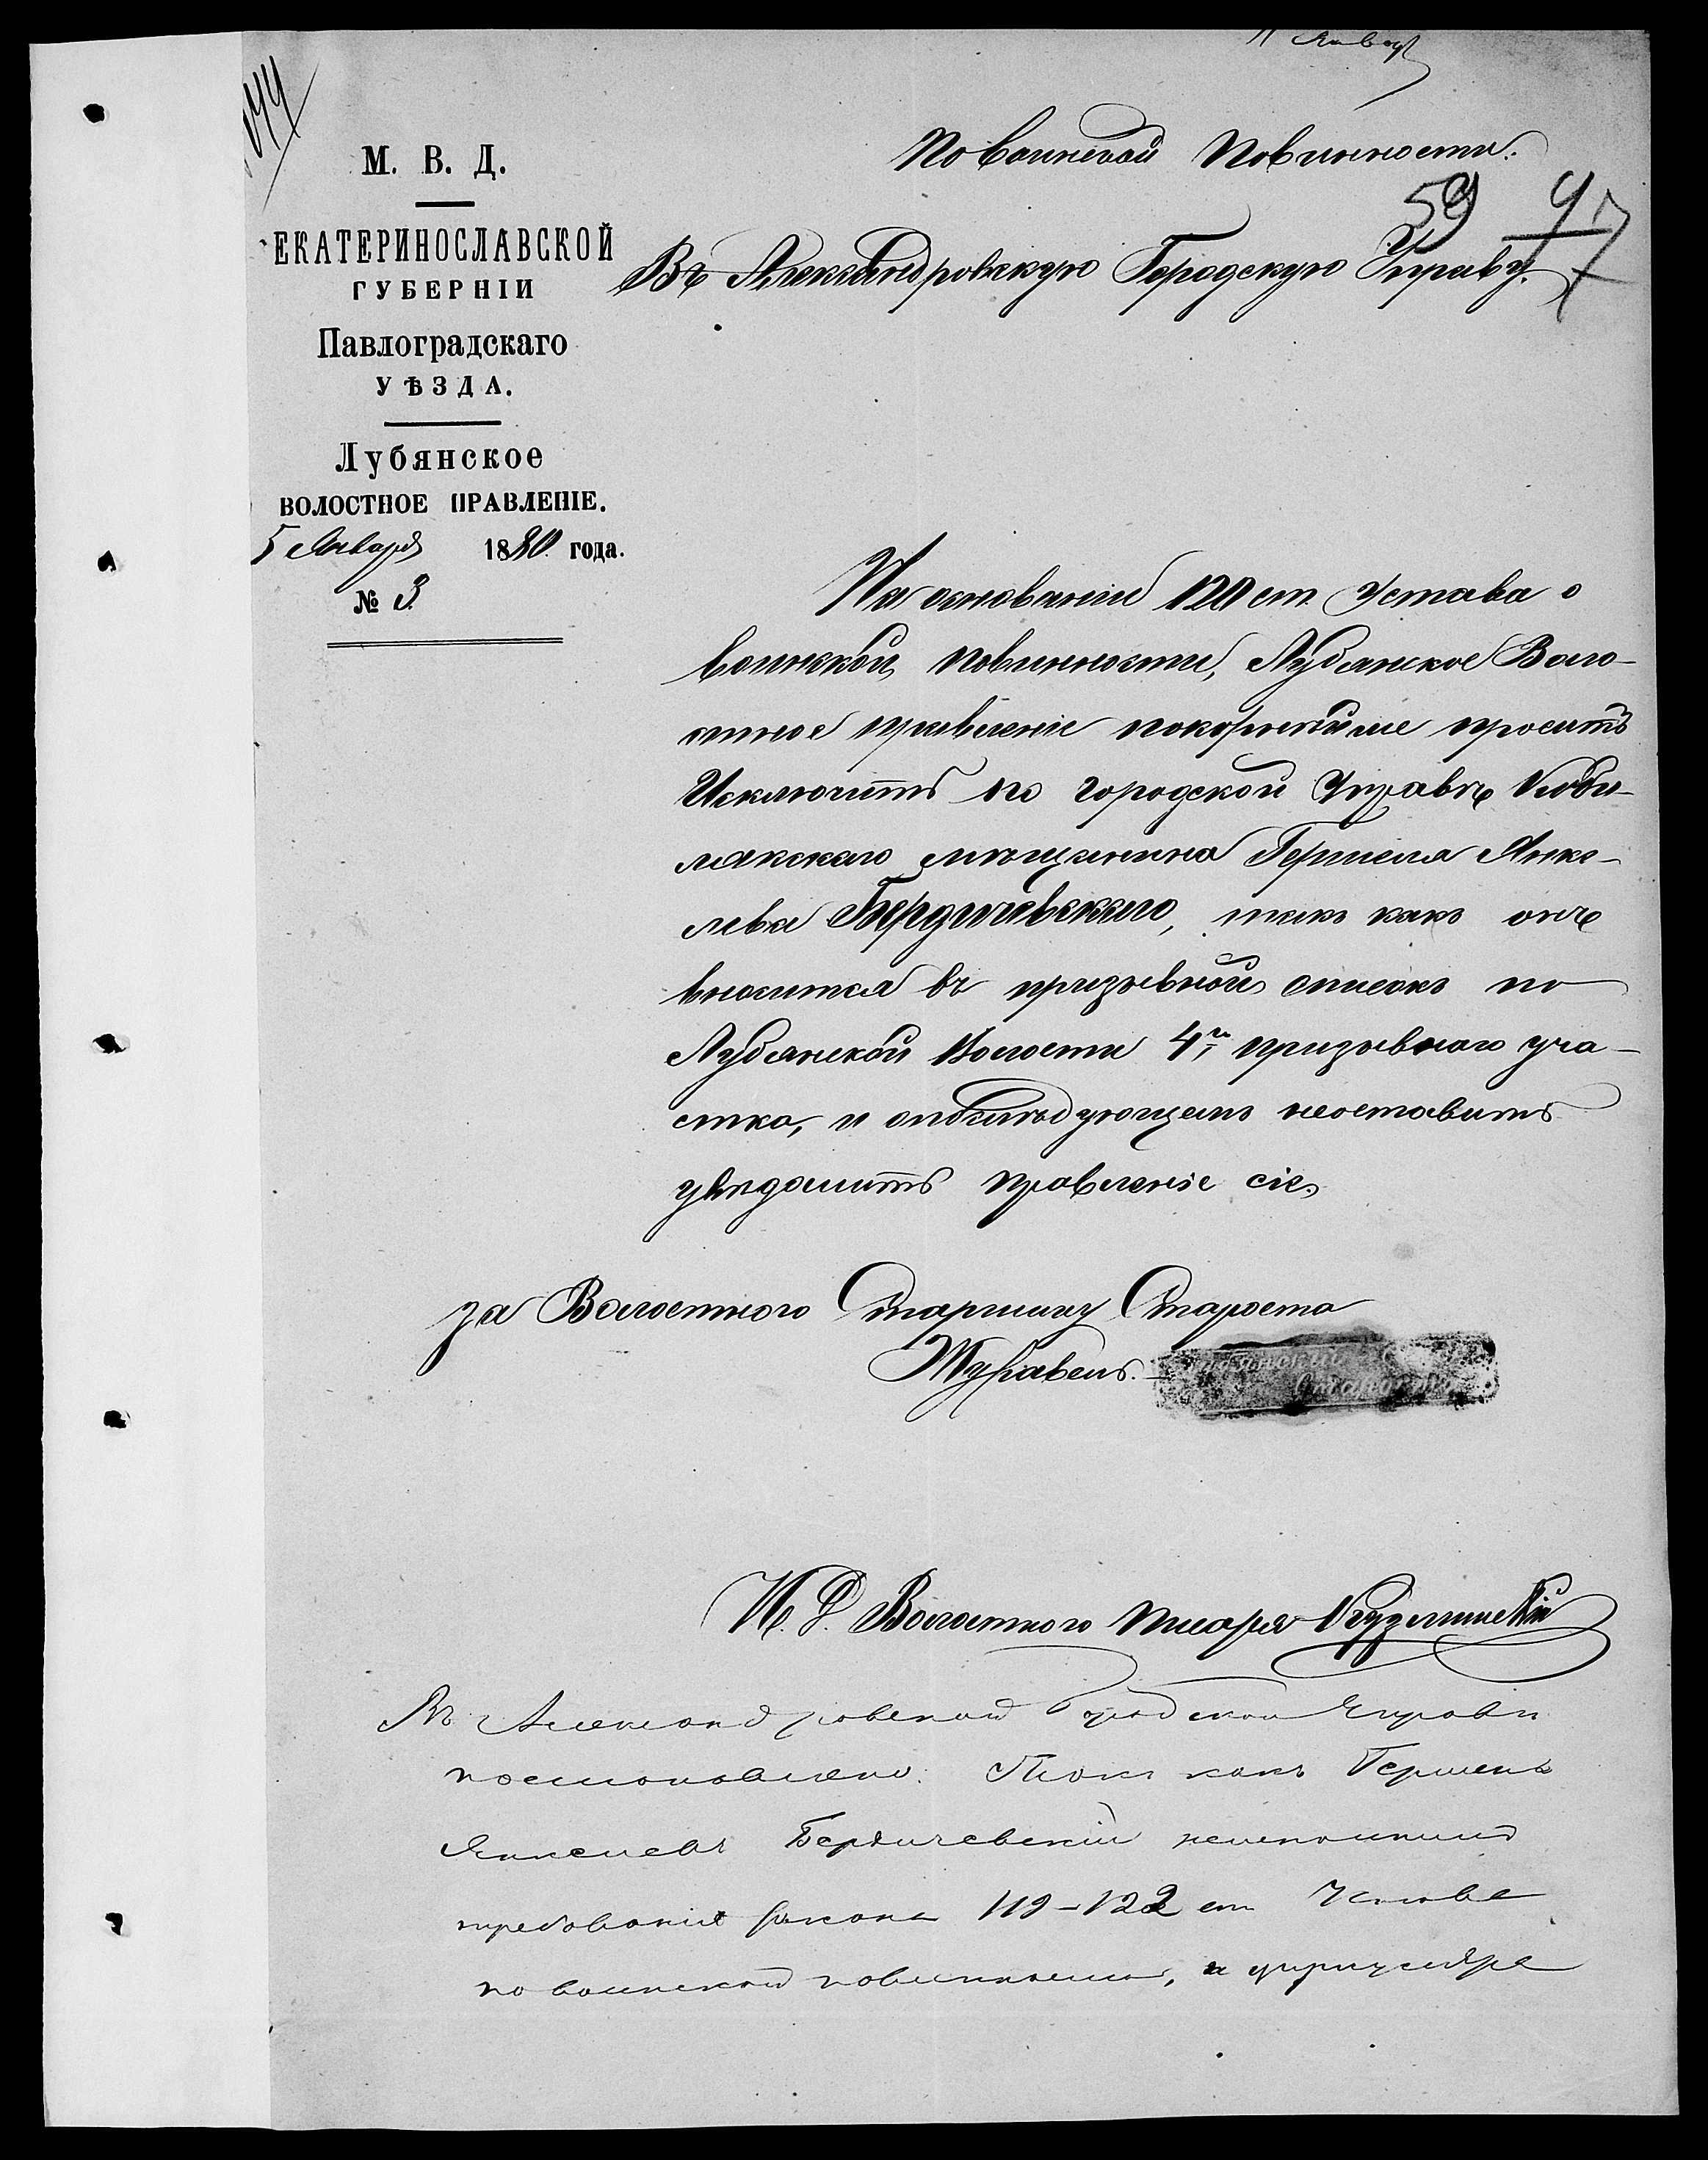 11 Январ
По воинской повинности.
59
97
М. В. Д.
ЕКАТЕРИНОСЛАВСКОЙ
ГУБЕРНІИ
Павлоградскаго
УѢЗДА.
Лубянское
ВОЛОСТНОЕ ПРАВЛЕНІЕ.
5 Января 1880 года.
№ 3.
Въ Александровскую Городскую Управу.
На основаніи 120 ст. Устава о
воинской повинности, Лубянское Воло-
стное правленіе покорнѣйше проситъ
Исключить по городской Управѣ Коби-
лякскаго мѣщанина Гершеля Янке-
лева Бердичевскаго, такъ какъ онъ
вносится въ призывной списокъ по
Лубянской Волости 4го призывнаго уча-
стка, и опослѣдующемъ неоставить
увѣдомить правленіе сіе.
за Волостнаго Старшину Староста
Журавель.
И. Д. Волостного писаря
Въ Александровской Городской Управѣ
постановлено: Такъ какъ Гершель
Янкелевъ Бердичевскій неисполнилъ
требованія закона 119-122 ст Устава
по воинской повинности, и циркуляра